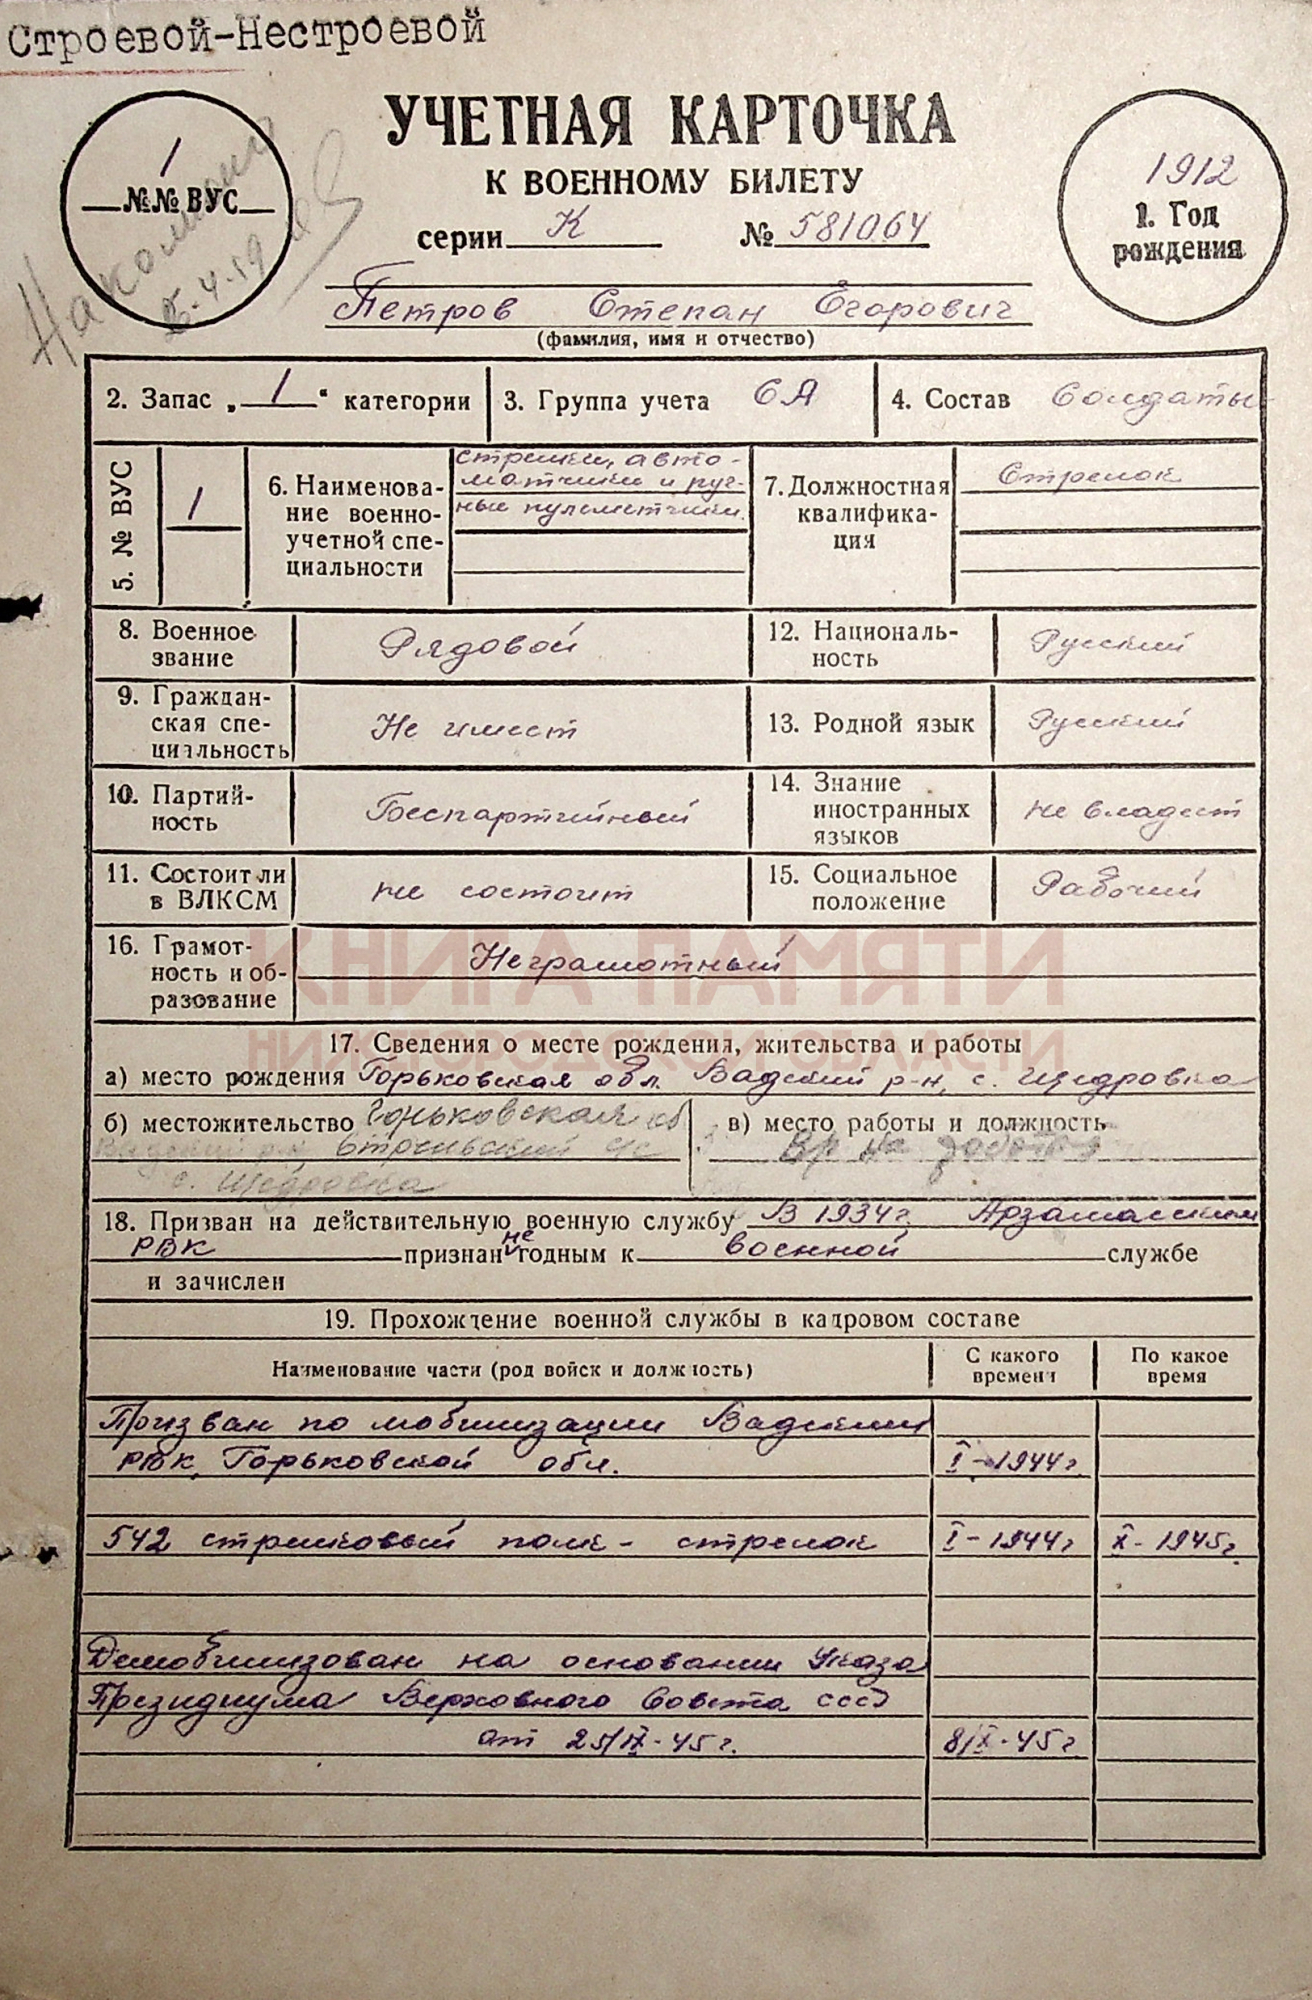 Строевой-Нестроевой
УЧЕТНАЯ КАРТОЧКА
К ВОЕННОМУ БИЛЕТУ
серии К № 581064
1
№№ ВУС
5-4-59
1912
1. Год
рождения
Петров Степан Егорович
(фамилия, имя и отчество)
2. Запас „1“ категории
3. Группа учета СА
4. Состав Солдаты
5. № ВУС
1
6. Наименова-
ние военно-
учетной спе-
циальности
стрелки, авто-
матчики и руч-
ные пулеметчики.
7. Должностная
квалифика-
ция
Стрелок
8. Военное
звание
Рядовой
12. Националь-
ность
Русский
9. Граждан-
ская спе-
циальность
Не имеет
13. Родной язык
Русский
10. Партий-
ность
Беспартийный
14. Знание
иностранных
языков
не владеет
11. Состоит ли
в ВЛКСМ
не состоит
15. Социальное
положение
Рабочий
16. Грамот-
ность и об-
разование
Неграмотный
КНИГА ПАМЯТИ
НИЖЕГОРОДСКОЙ ОБЛАСТИ
17. Сведения о месте рождения, жительства и работы
а) место рождения Горьковская обл. Вадский р-н, с. Щедровка
б) местожительство Горьковская об
Вадский р-н, с/с
с. Щедровка
в) место работы и должность
Вр не работа
18. Призван на действительную военную службу В 1934г. Арзамасским
РВК признан не годным к военной службе
и зачислен
19. Прохождение военной службы в кадровом составе
Наименование части (род войск и должность)
С какого
времени
По какое
время
Призван по мобилизации Вадским
РВК, Горьковской обл. I-1944г.
542 стрелковый полк - стрелок I-1944г X-1945г.
Демобилизован на основании Указа
Президиума Верховного Совета СССР
от 25/IX-45г. 8/X-45г